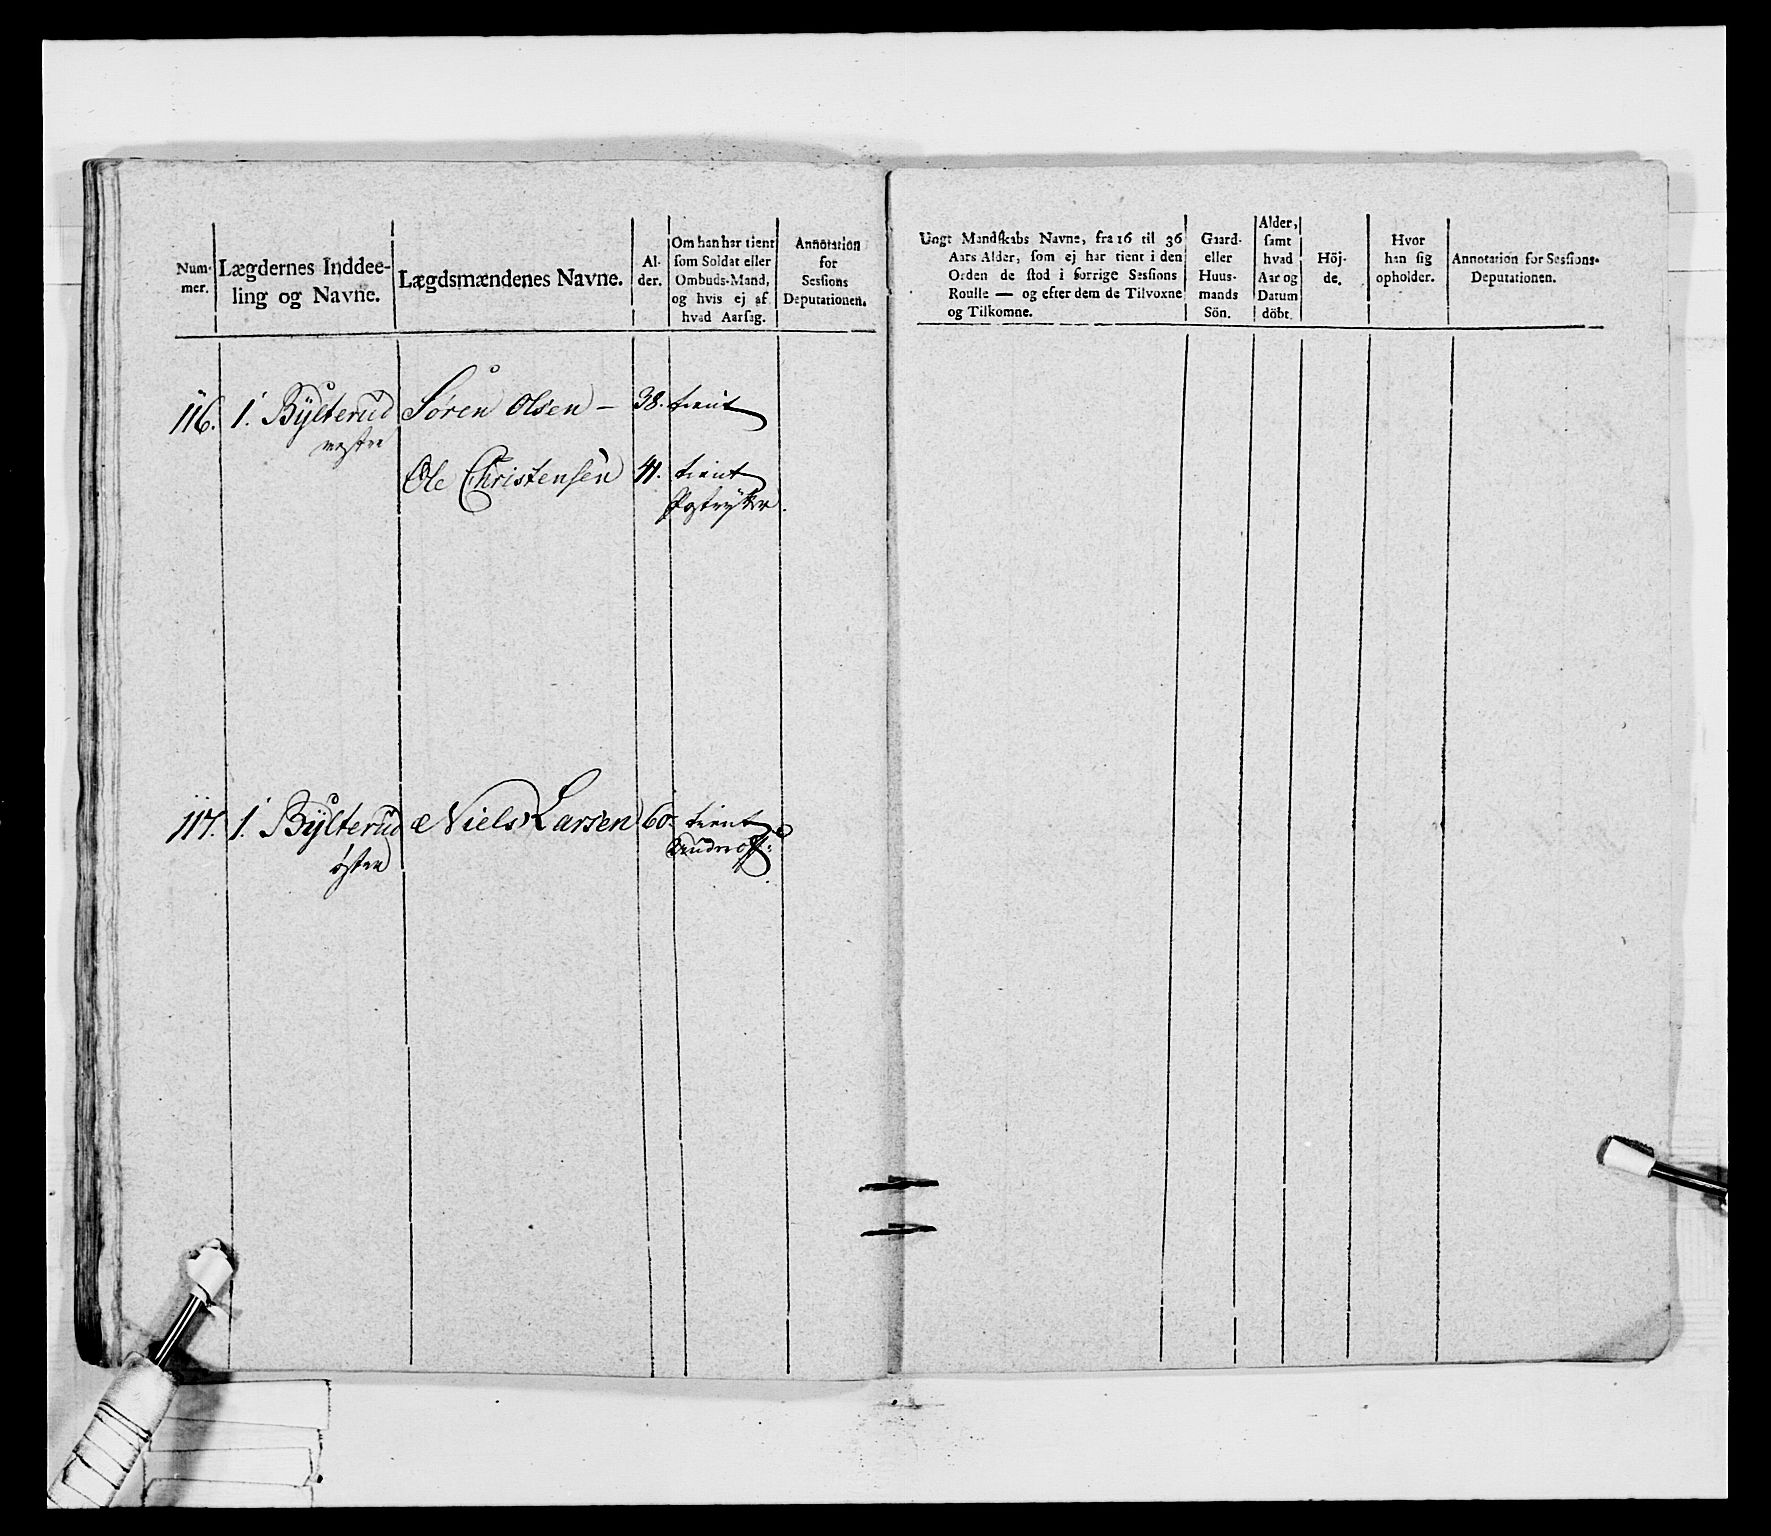 Num-
mer.
Lægdernes Inddee-
ling og Navne.
Lægdsmændenes Navne.
Al-
der.
Om han har tient
som Soldat eller
Ombuds-Mand,
og hvis ej af
hvad Aarsag.
Annotation
for
Sessions
Deputationen.
Ungt Mandskabs Navne, fra 16 til 36
Aars Alder, som ej har tient i den
Orden de stod i forrige Sessions
Roulle — og efter dem de Tilvoxne
og Tilkomne.
Gaard-
eller
Huus-
mands
Sön.
Alder,
samt
hvad
Aar og
Datum
döbt.
Höj-
de.
Hvor
han sig
opholder.
Annotation for Sessions-
Deputationen.
116. 1. Bylterud Søren Olsen — 38. tient
westre
Ole Christensen 41. tient
117. 1. Bylterud Niels Larsen 60. tient
østre